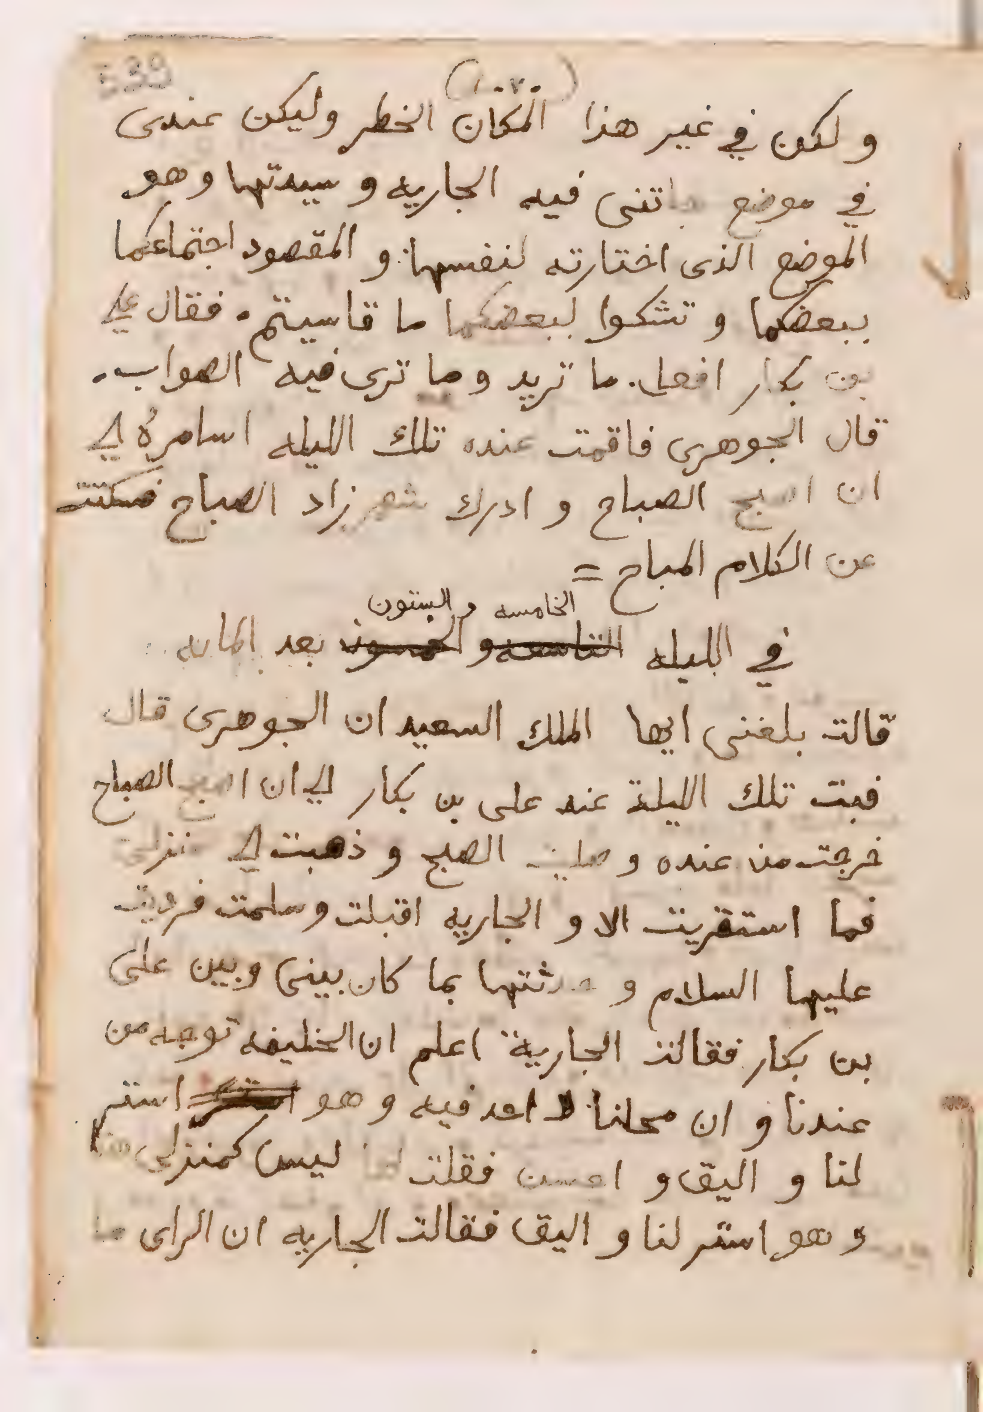 539
(١٠٧٠)
ولكن في غير هذا المكان الخطر وليكن عندى
في موضع جاتنى فيه الجاريه و سيدتها وهو
الموضع الذى اختارته لنفسها و المقصود اجتماعكما
ببعضكما و تشكوا لبعضكما ما قاسيتم . فقال علي
بن بكار افعل ما تريد وما ترى فيه الصواب .
قال الجوهرى فاقمت عنده تلك الليله اسامرهُ الي
ان اصبح الصباح و ادرك شهرزاد الصباح فسكتت
عن الكلام المباح =
الخامسه و الستون
في الليله التاسعه و الخمسون بعد المايه
قالت بلغنى ايها الملك السعيد ان الجوهرى قال
فبت تلك الليلة عند على بن بكار الي ان اصبح الصباح
خرجت من عنده و صليت الصبح و ذهبت الي منزلى
فما استقريت الا و الجاريه اقبلت وسلمت فرديت
عليها السلام و حدثتها بما كان بينى وبين على
بن بكار فقالت الجارية اعلم ان الخليفه توجه من
عندنا و ان محلنا لا احد فيه و هو استر
لنا و اليق و احسن فقلت لها ليس كمنزلى هذا
و هو استر لنا و اليق فقالت الجاريه ان الراى ما